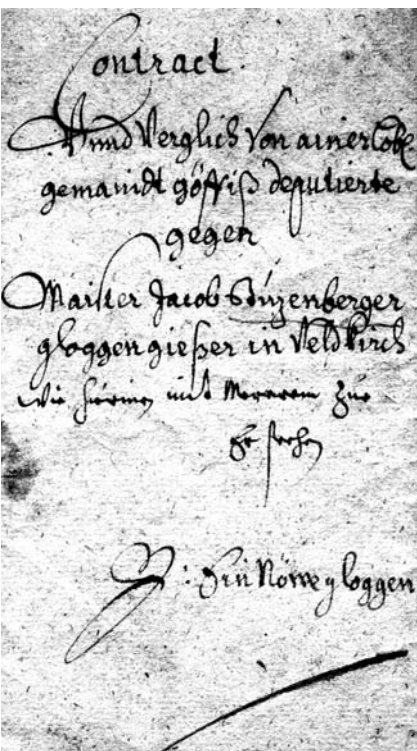 Contract.
Vnnd Verglich Von ainer lobl
gemaindt göffiß deputierte
gegen
Maister Jacob Stüzenberger
gloggengießer in Veldkirch
wie hierinen mit Mererem zue
Ersechen
Nöwe gloggen